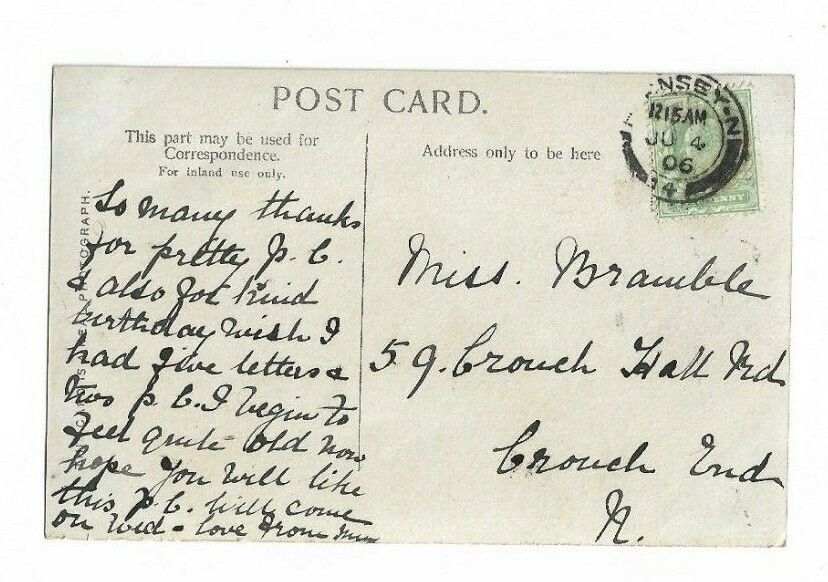 POST CARD.
This part may be used for
Correspondence.
For inland use only.
Address only to be here
NSEY·N
12 15 AM
JU 4
06
4
NNY
PHOTOGRAPH.
So many thanks
for pretty P. C.
& also for kind
birthday wish I
had five letters &
two P. C. I begin to
feel quite old now
hope you will like
this P. C. will come
on Wed - love from
Miss. Bramble
59. Crouch Hall Rd
Crouch End
N.